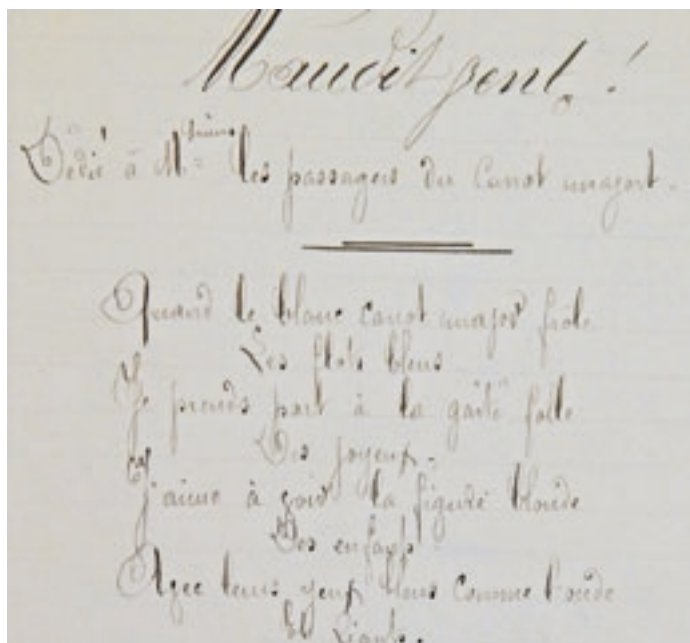 Maudit vent !
Dédié à M. les passagers du Canot major.
Quand le blanc canot major frôle
Les flots bleus
Je prends part à la gaîté folle
Des joyeux.
J'aime à voir la figure blonde
Des enfants
Avec leurs yeux bleus comme l'onde
Et riants.